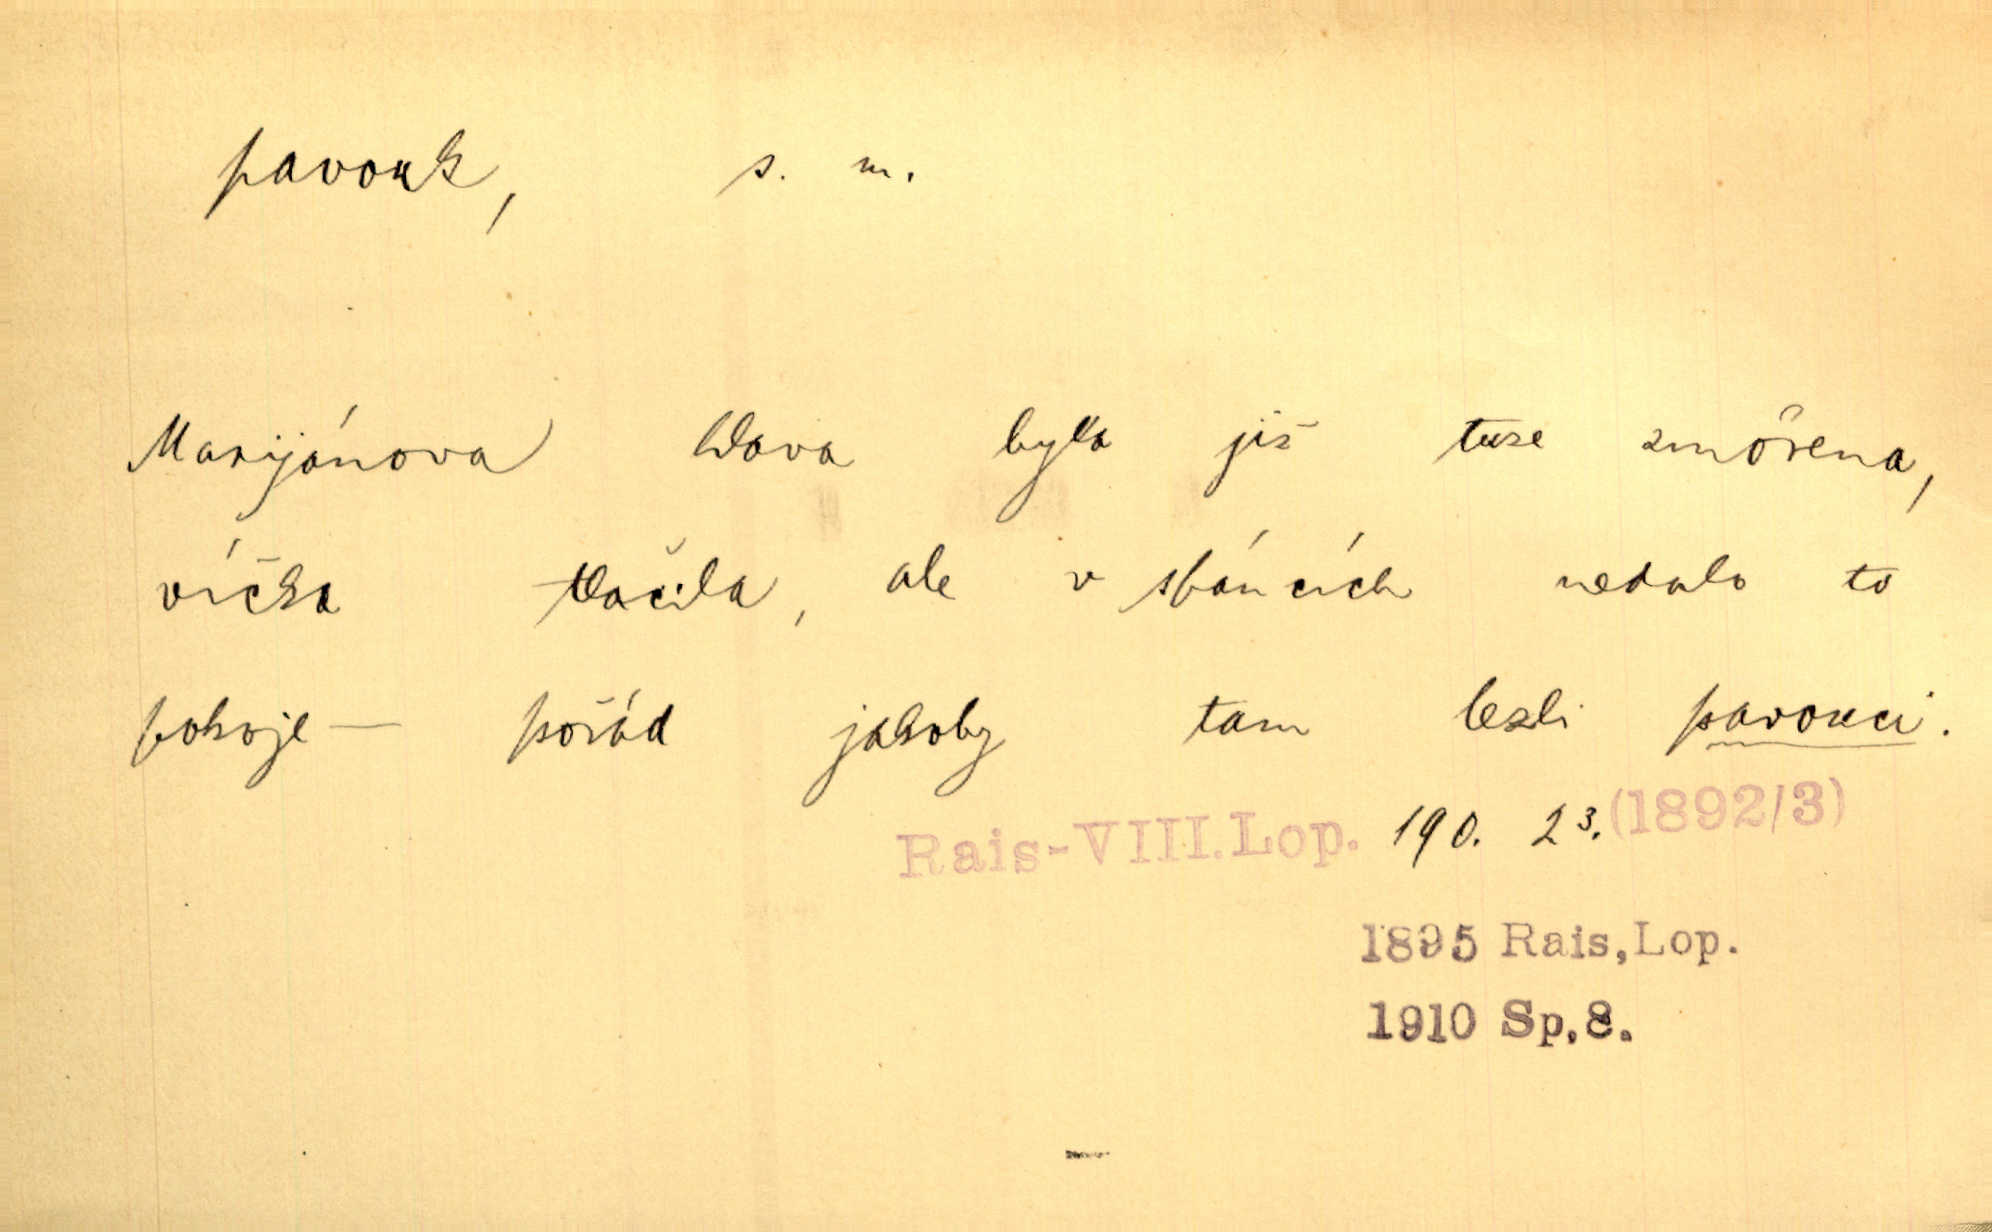 pavouk, s. m.
Marijánova hlava byla již tuze zmořena,
víčka tlačila, ale v spáncích nedalo to
pokoje — pořád jakoby tam lezli pavouci.
Rais-VIII.Lop. 190. 23. (1892/3)
1895 Rais,Lop.
1910 Sp.8.